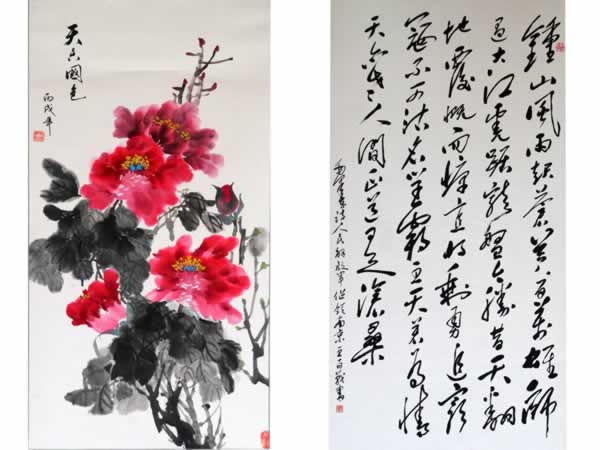 天香國色
丙戌年
鐘山風雨起蒼黃百萬雄師
過大江虎踞龍盤今勝昔天翻
地覆慨而慷宜將剩勇追窮
寇不可沽名學霸王天若有情
天亦老人間正道是滄桑
毛澤東詩人民解放軍佔領南京